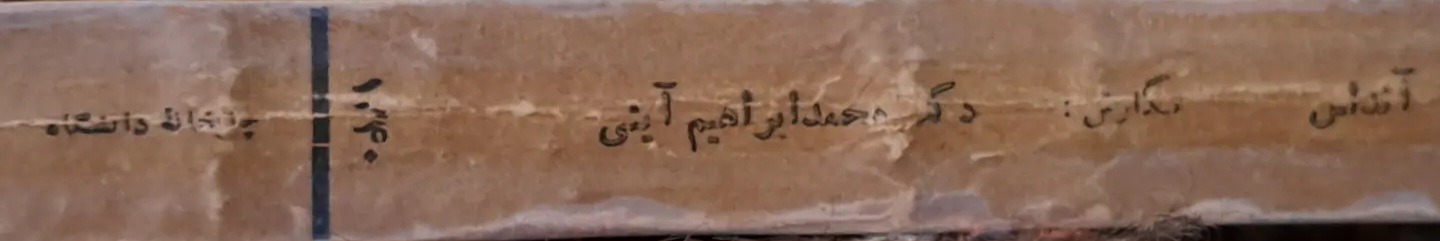 آندلس
نگارش: دکتر محمد ابراهیم آیتی
چاپخانهٔ دانشگاه